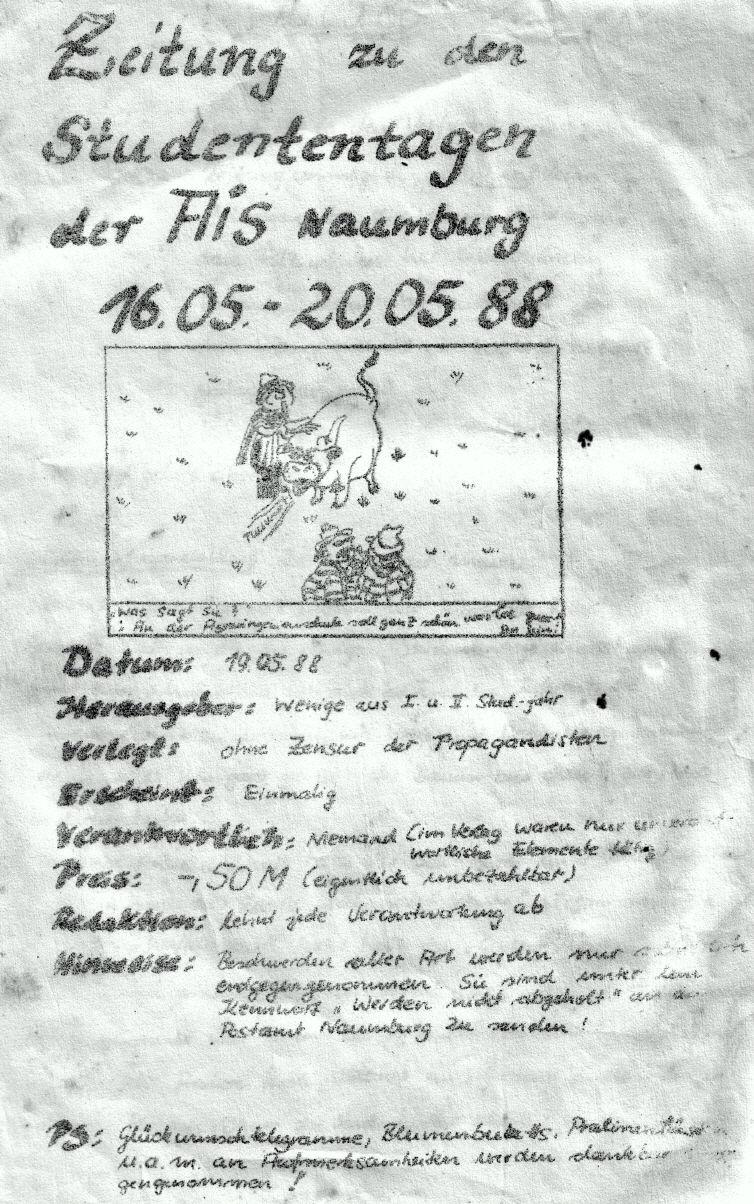 Zeitung zu den
Studententagen
der AIS Naumburg
16.05.- 20.05. 88
Was sagt sie ?
: An der soll ganz schön was los
sein!
Datum: 19.05.88
Herausgeber: Wenige aus I. u. II. Stud.-jahr
Verlegt: ohne Zensur der Propagandisten
Erscheint: Einmalig
Verantwortlich: Niemand (im Verlag waren nur
wortliche Elemente tätig)
Preis: -,50 M (eigentlich unbezahlbar)
Redaktion: lehnt jede Verantwortung ab
Hinweise: Beschwerden aller Art werden nur
endgegengenommen. Sie sind unter dem
Kennwort „Werden nicht abgeholt" an
Postamt Naumburg zu senden !
PS: Glückwunschtelegramme, Blumenbuketts,
u.a.m. an Aufmerksamkeiten werden
gengenommen !